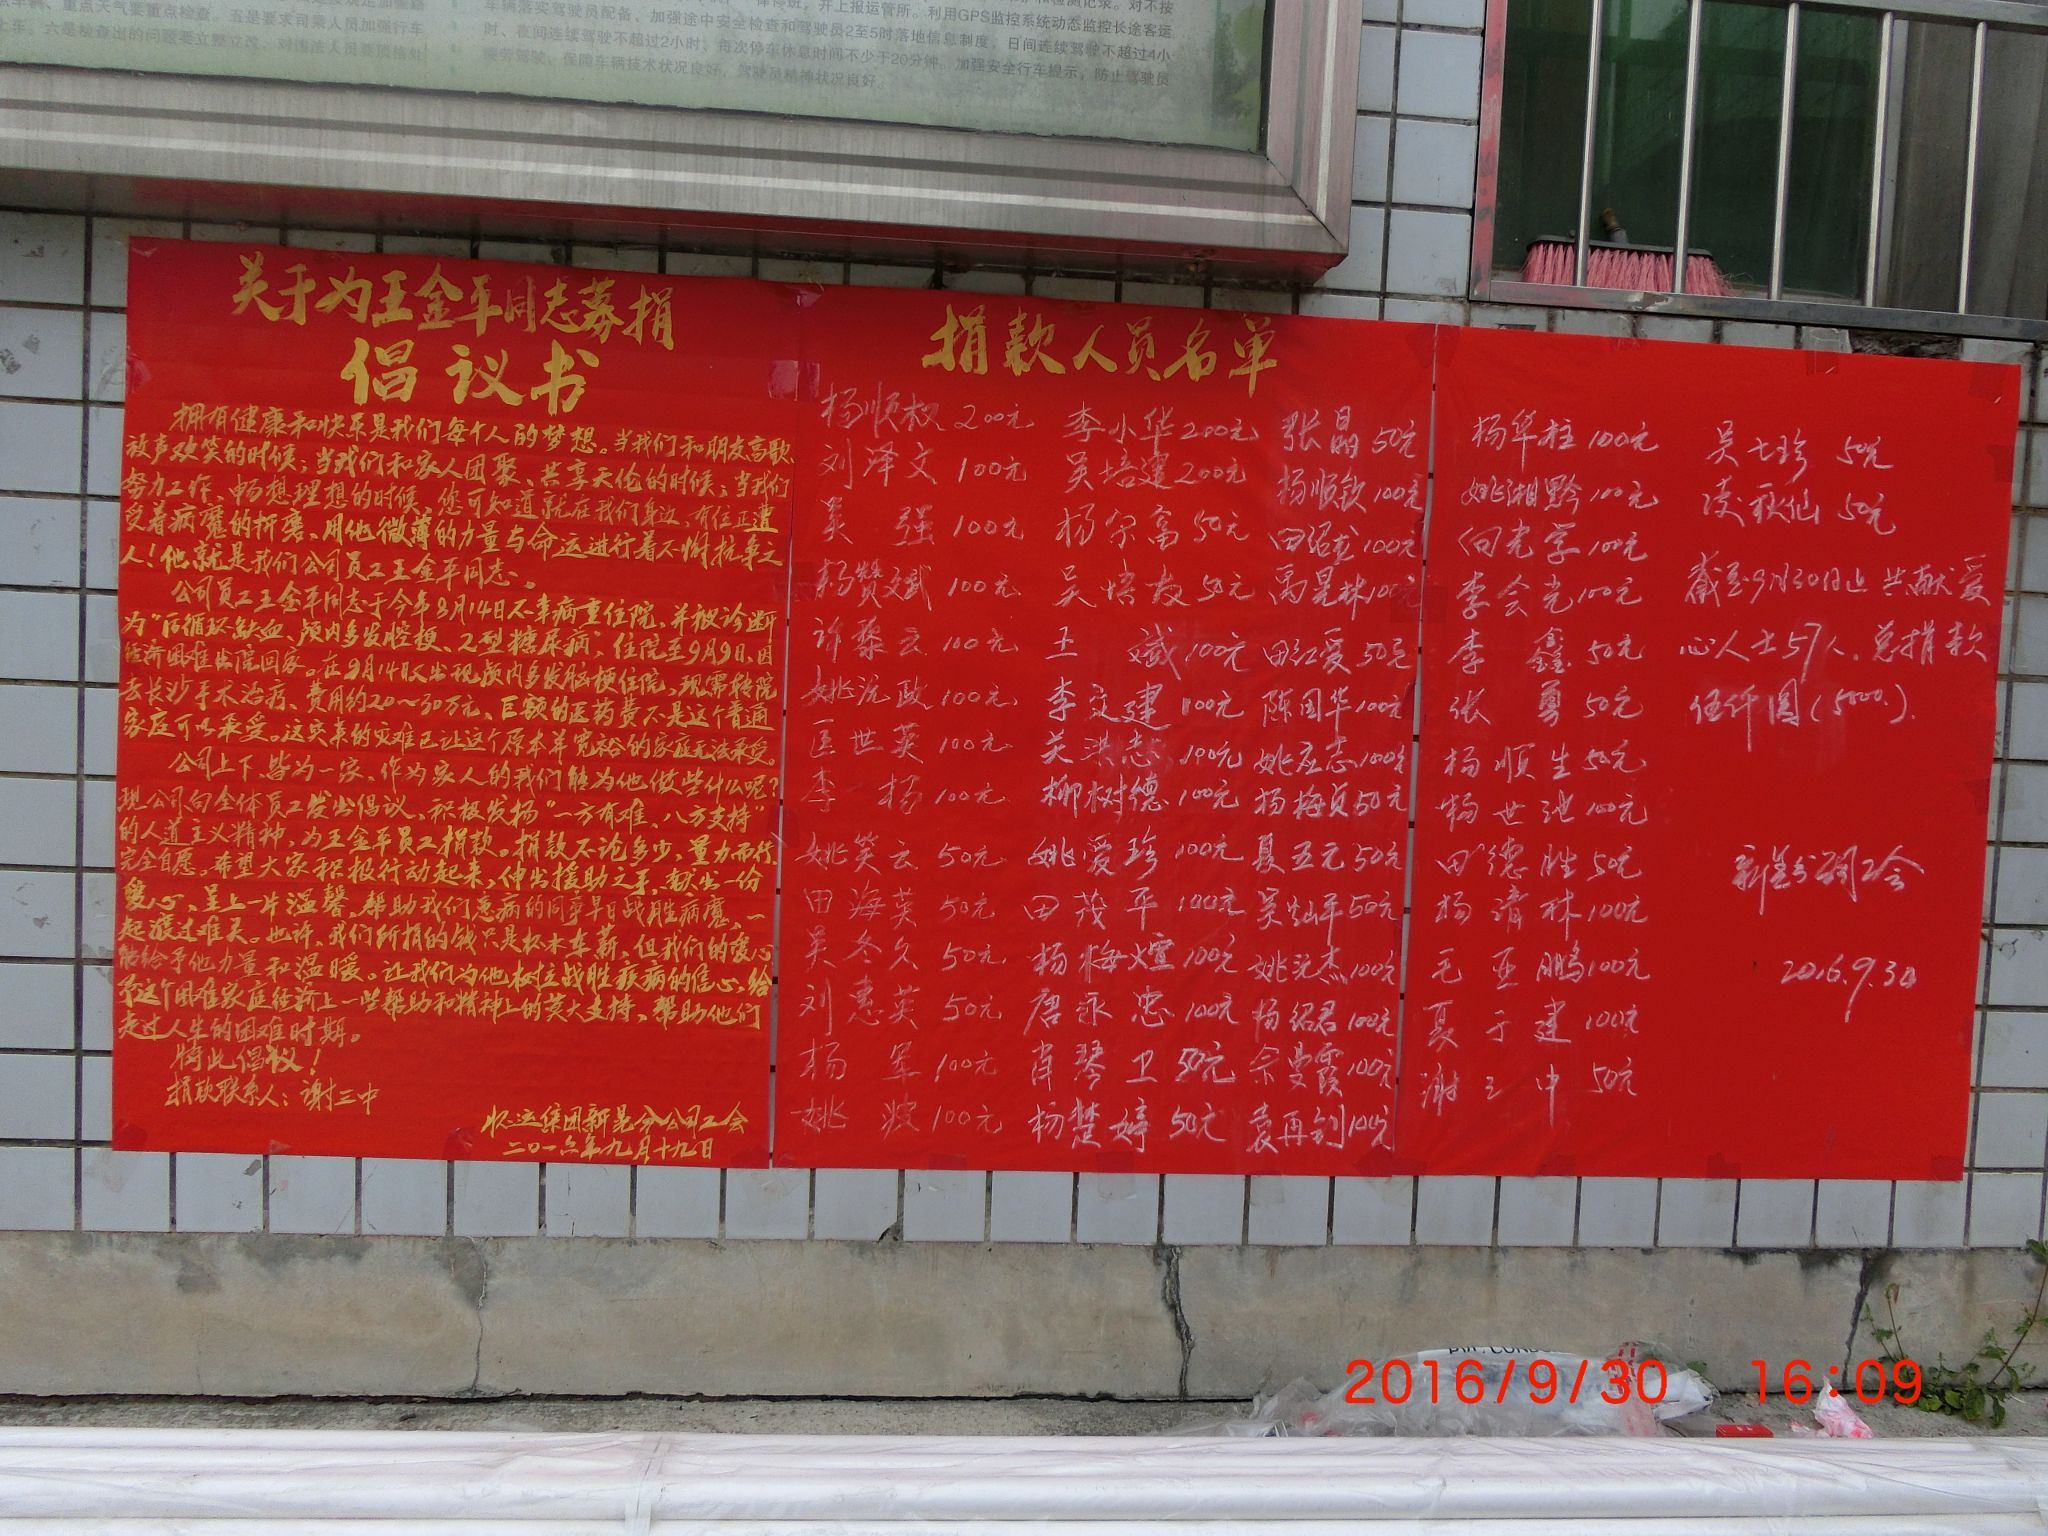 车辆落实驾驶员配备、加强途中安全检查和驾驶员2至5时落地信息制度,日间连续驾驶不超过4小
时、夜间连续驾驶不超过2小时,每次停车休息时间不少于20分钟。加强安全行车提示,防止驾驶员
疲劳驾驶、保障车辆技术状况良好,驾驶员精神状况良好。
关于为王金平同志募捐
倡议书
拥有健康和快乐是我们每个人的梦想。当我们和朋友高歌、
放声欢笑的时候;当我们和家人团聚、共享天伦的时候;当我们
努力工作、畅想理想的时候,您可知道就在我们身边,有位正遭
受着病魔的折磨、用他微薄的力量与命运进行着不懈抗争之
人!他就是我们公司员工王金平同志。
公司员工王金平同志于今年8月14日不幸病重住院,并被诊断
为“后循环缺血、颅内多发腔梗、2型糖尿病”,住院至9月9日,因
经济困难出院回家。在9月14日又出现颅内多发脑梗住院,现需转院
去长沙手术治疗,费用约20~30万元、巨额的医药费不是这个普通
家庭可以承受。这突来的灾难已让这个原本并宽裕的家庭无法承受。
公司上下、皆为一家、作为家人的我们能为他做些什么呢?
现公司向全体员工发出倡议、积极发扬“一方有难、八方支持”
的人道主义精神,为王金平员工捐款。捐款不论多少,量力而行、
完全自愿。希望大家积极行动起来,伸出援助之手,献出一份
爱心、呈上一片温馨、帮助我们患病的同事早日战胜病魔、一
起渡过难关。也许、我们所捐的钱只是杯水车薪、但我们的爱心
能给予他力量和温暖。让我们为他树立战胜疾病的信心,给
予这个困难家庭经济上一些帮助和精神上的莫大支持、帮助他们
走过人生的困难时期。
特此倡议!
捐款联系人:谢三中
怀运集团新晃分公司工会
二0一六年九月十九日
捐款人员名单
杨顺权 200元 李小华 200元 张晶 50元
刘泽文 100元 吴培建 200元 杨顺钦 100元
吴强 100元 杨宗富 50元 田绍龙 100元
杨赞斌 100元 吴培友 50元 禹晃林 100元
许黎云 100元 王斌 100元 田红爱 50元
姚沅政 100元 李文建 100元 陈国华 100元
匡世英 100元 吴洪志 100元 姚应志 100元
李杨 100元 柳树德 100元 杨梅贞 50元
姚笑云 50元 姚爱珍 100元 夏五元 50元
田海英 50元 田茂平 100元 吴灿平 50元
吴冬久 50元 杨梅煊 100元 姚沅杰 100元
刘惠英 50元 唐永忠 100元 杨绍君 100元
杨军 100元 肖琴卫 50元 佘曼霞 100元
姚波 100元 杨楚婷 50元 袁再钊 100元
杨华柱 100元
姚湘黔 100元
向光学 100元
李会光 100元
李鑫 50元
张勇 50元
杨顺生 50元
杨世池 100元
田德胜 50元
杨清林 100元
毛亚鹏 100元
夏于建 100元
谢三中 50元
吴七珍 50元
凌秋仙 50元
截至9月30日止共献爱
心人士57人,总捐款
伍仟圆(5000.).
新晃分公司工会
2016.9.30
2016/9/30 16:09